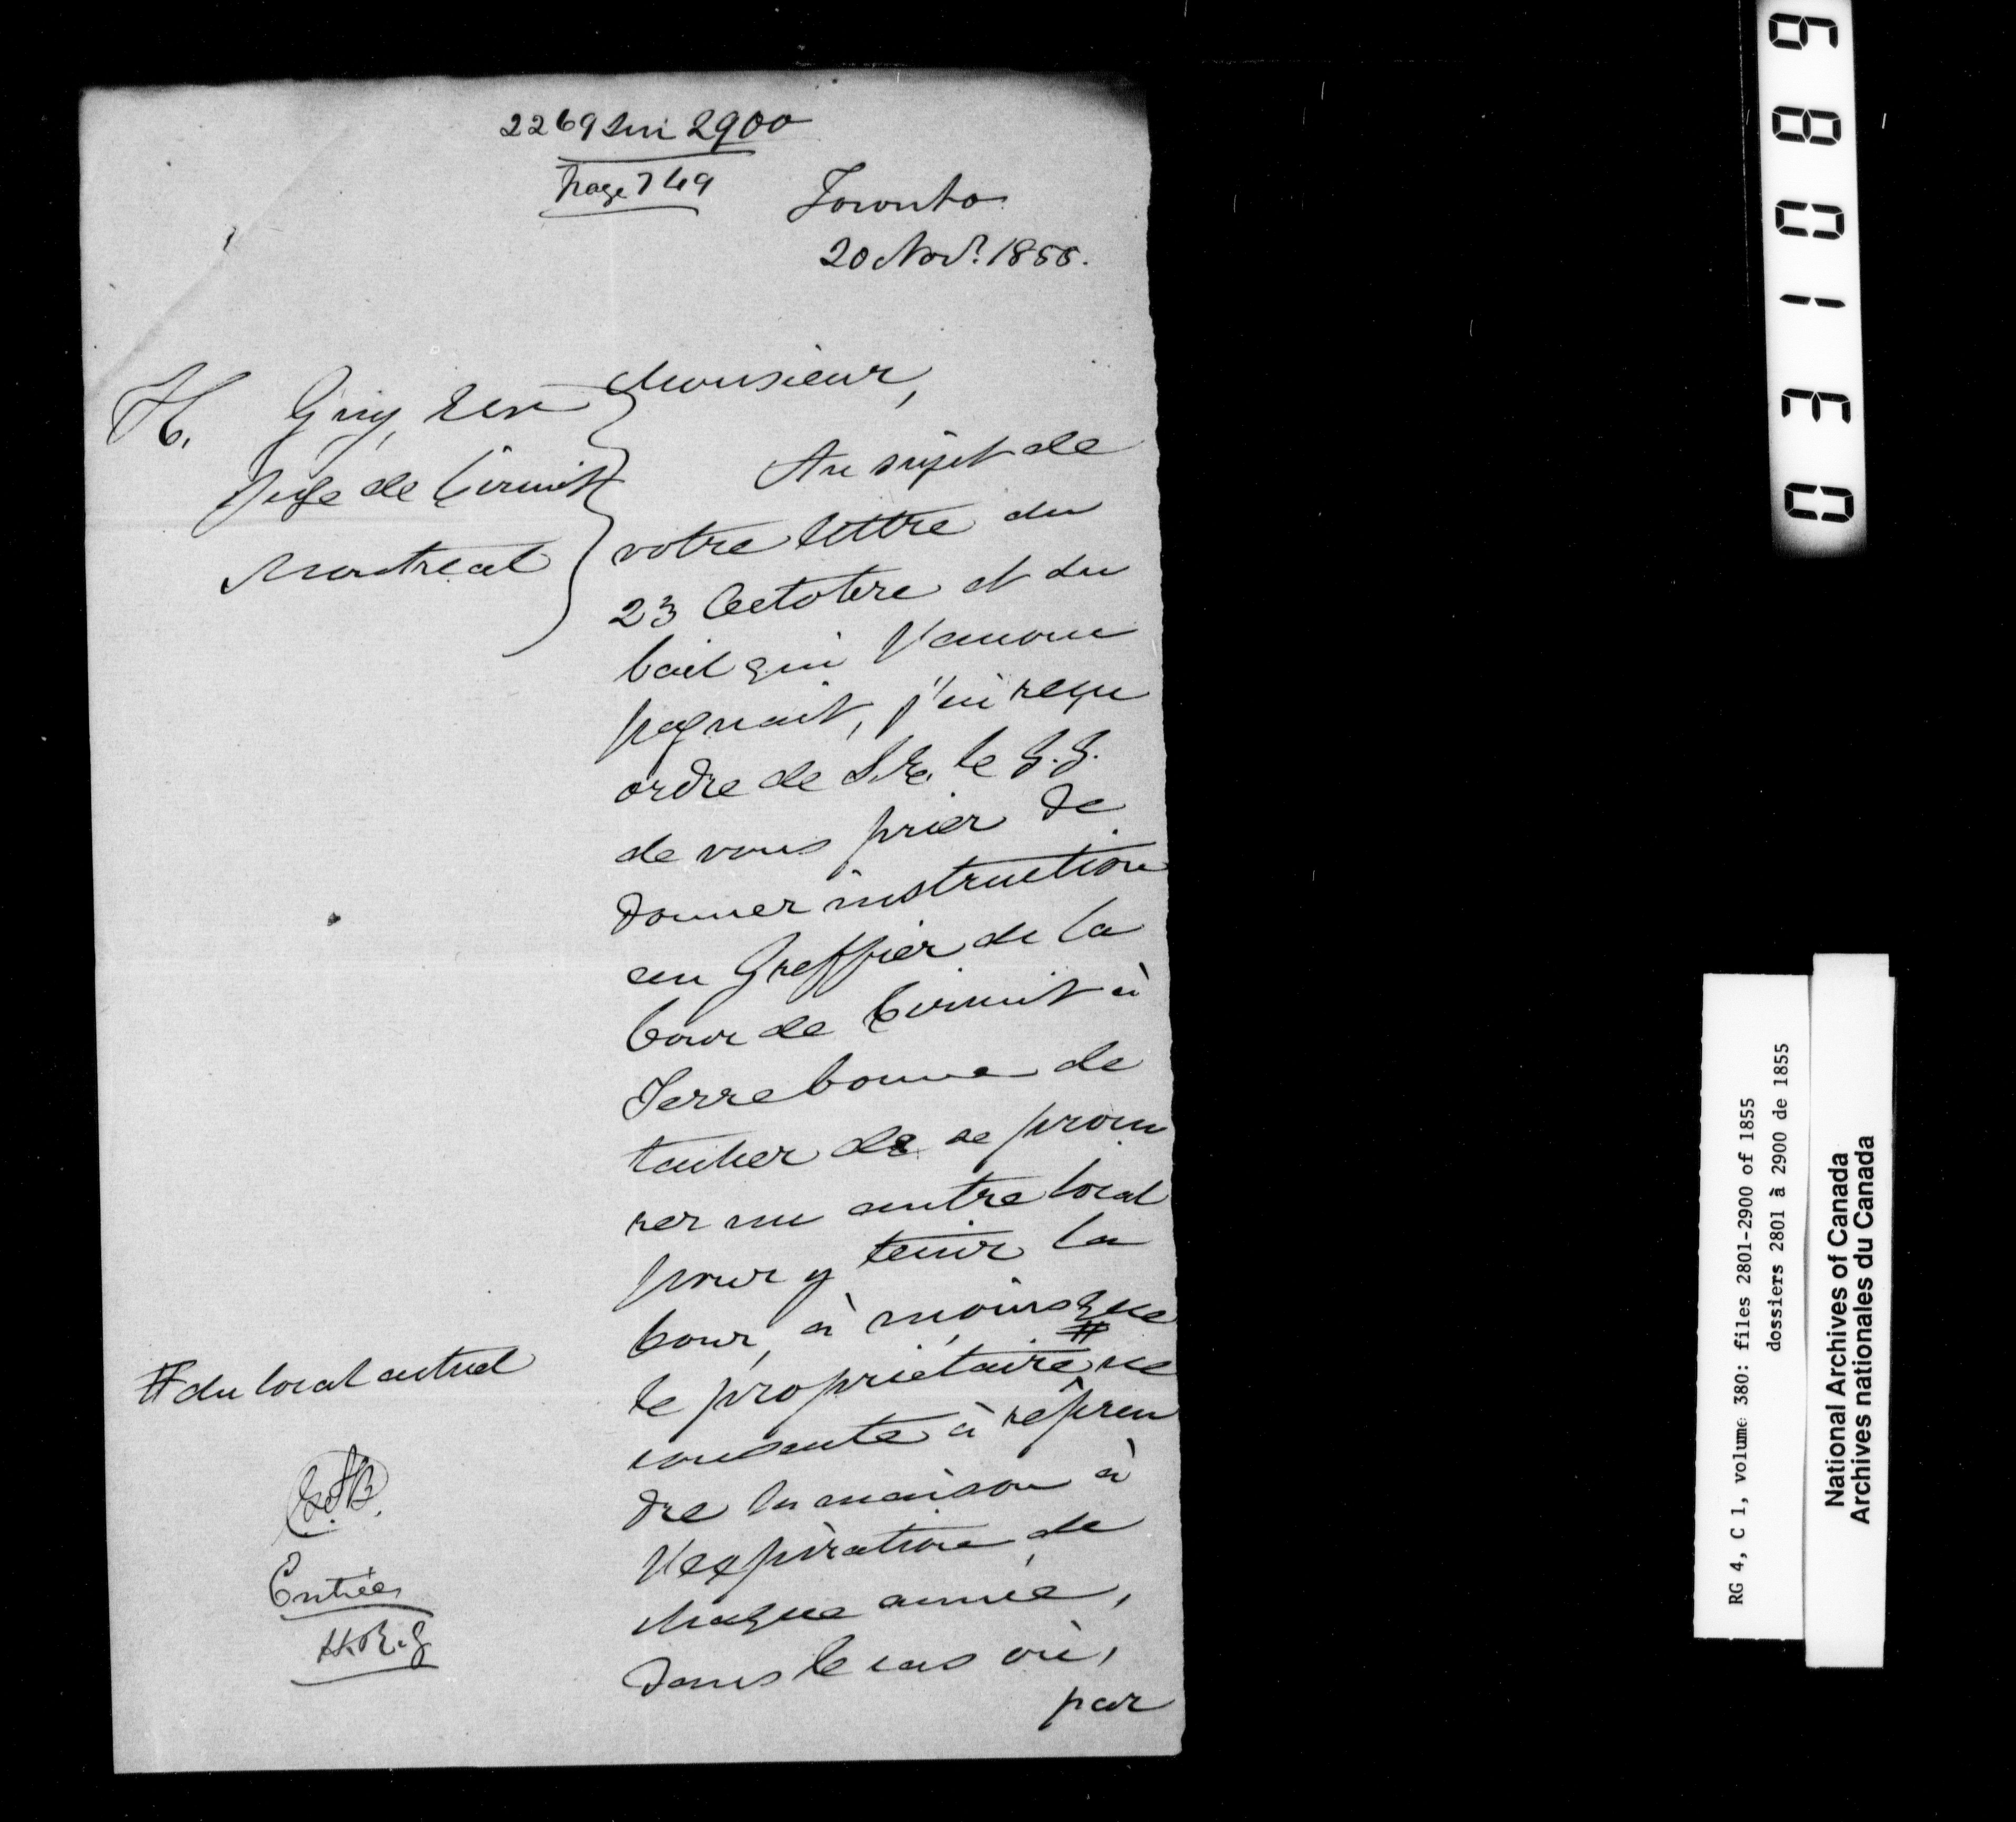 2269 sur 2900
page 749
Toronto
20 Novr. 1855.
H. Guy, Ecr
Juge de Circuit
Montreal
Monsieur,
Au sujet de
votre lettre du
23 Octobre et du
bail qui l'accom
pagnait, j'ai reçu
ordre de S.E. le G.G.
de vous prier de
donner instruction
au Greffier de la
Cour de Circuit à
Terrebonne de
tacher de se procu
rer un autre local
pour y tenir la
Cour, à moins que
le propriétaire # ne
consente à repren
dre la maison à
l'expiration de
chaque année,
dans le cas où,
par
# du local actuel
Entrée
6
8
0
1
3
0
RG 4, C 1, volume 380: files 2801-2900 of 1855
dossiers 2801 à 2900 de 1855
National Archives of Canada
Archives nationales du Canada